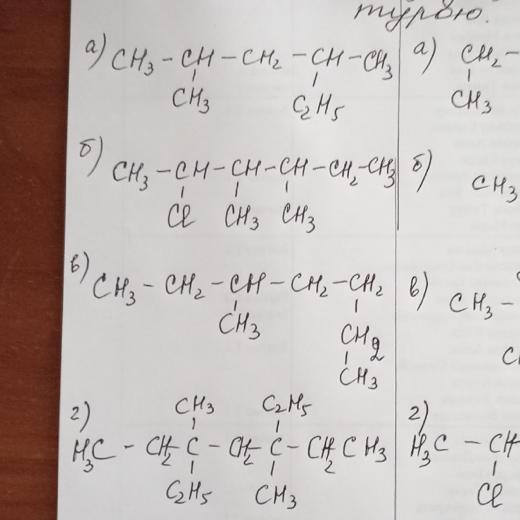 турою.
а) CH3 - CH - CH2 - CH - CH3
CH3 C2H5
б) CH3 - CH - CH - CH - CH2 - CH3
Cl CH3 CH3
в) CH3 - CH2 - CH - CH2 - CH2
CH3 CH2
CH3
г) CH3 C2H5
H3C - CH2 - C - CH2 - C - CH2 CH3
C2H5 CH3
а) CH2 -
CH3
б) CH3
в) CH3 -
г)
H3C - CH
Cl